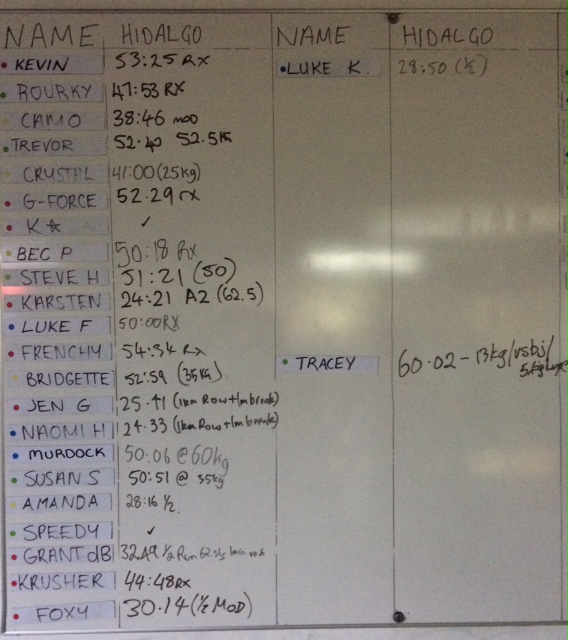 NAME HIDALGO NAME HIDALGO
KEVIN 53:25 RX LUKE K. 28:50 (½)
ROURKY 47:53 RX
CAMO 38:46 MOD
TREVOR 52.40 52.5K
CRYSTAL 41:00 (25kg)
G-FORCE 52.29 rx
K☆ ✓
BEC P 50:18 RX
STEVE H 51:21 (50)
KARSTEN 24:21 A2 (62.5)
LUKE F 50:00 RX
FRENCHY 54:34 Rx TRACEY 60.02 - 13kg/vsbj/
BRIDGETTE 52'59 (35KG)
JEN G 25.41 (1km Row + 1m break)
NAOMI H 24.33 (1km Row + 1m break)
MURDOCK 50:06 @ 60kg
SUSAN S 50:51 @ 35kg
AMANDA 28:16 ½.
SPEEDY ✓
GRANT dB 32.49 ½ Run 1min
KRUSHER 44:48 Rx
FOXY 30.14 (½ MOD)